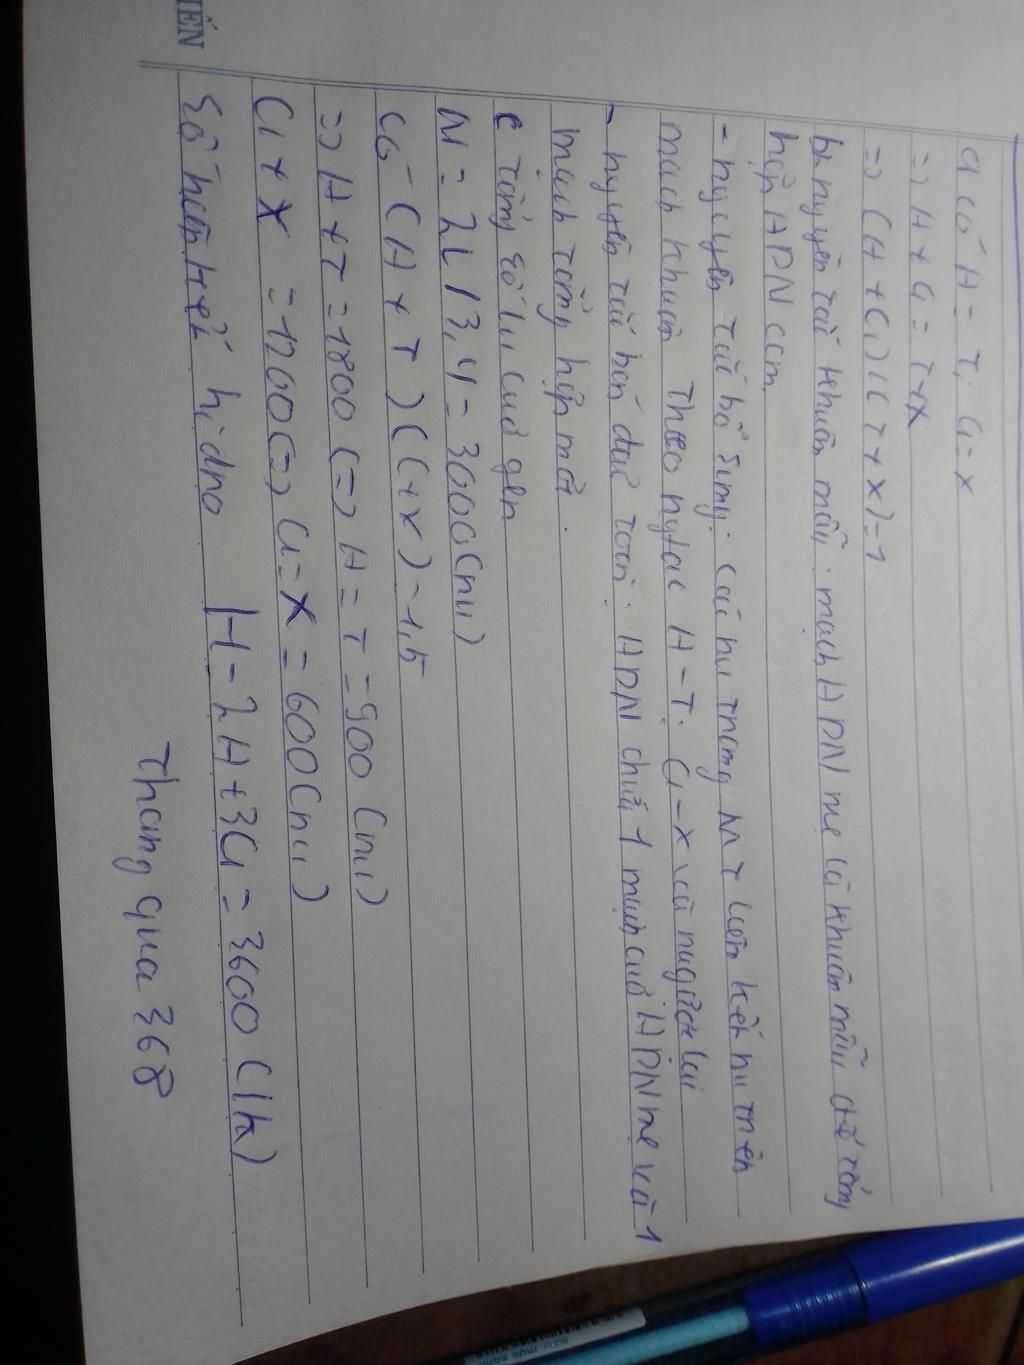 a có A = T; G = X
=> A + G = T + X
=> (A + G) / (T + X) = 1
b. nguyên tắc khuôn mẫu: mạch ADN mẹ là khuôn mẫu để tổng
hợp ADN con
- nguyên tắc bổ sung: các nu trong MT liên kết nu trên
mạch khuôn theo ngtắc A-T; G-X và ngược lại
- nguyên tắc bán bảo toàn: ADN chứa 1 mạch của ADN mẹ và 1
mạch tổng hợp mới.
c tổng số nu của gen
N = 2L/3,4 = 3000 (nu)
có (A + T) / (G + X) = 1,5
=> A + T = 1800 (=> A = T = 900 (nu)
G + X = 1200 (=> G = X = 600 (nu)
Số liên kết hidro H = 2A + 3G = 3600 (lk)
thangqua368
IẾN